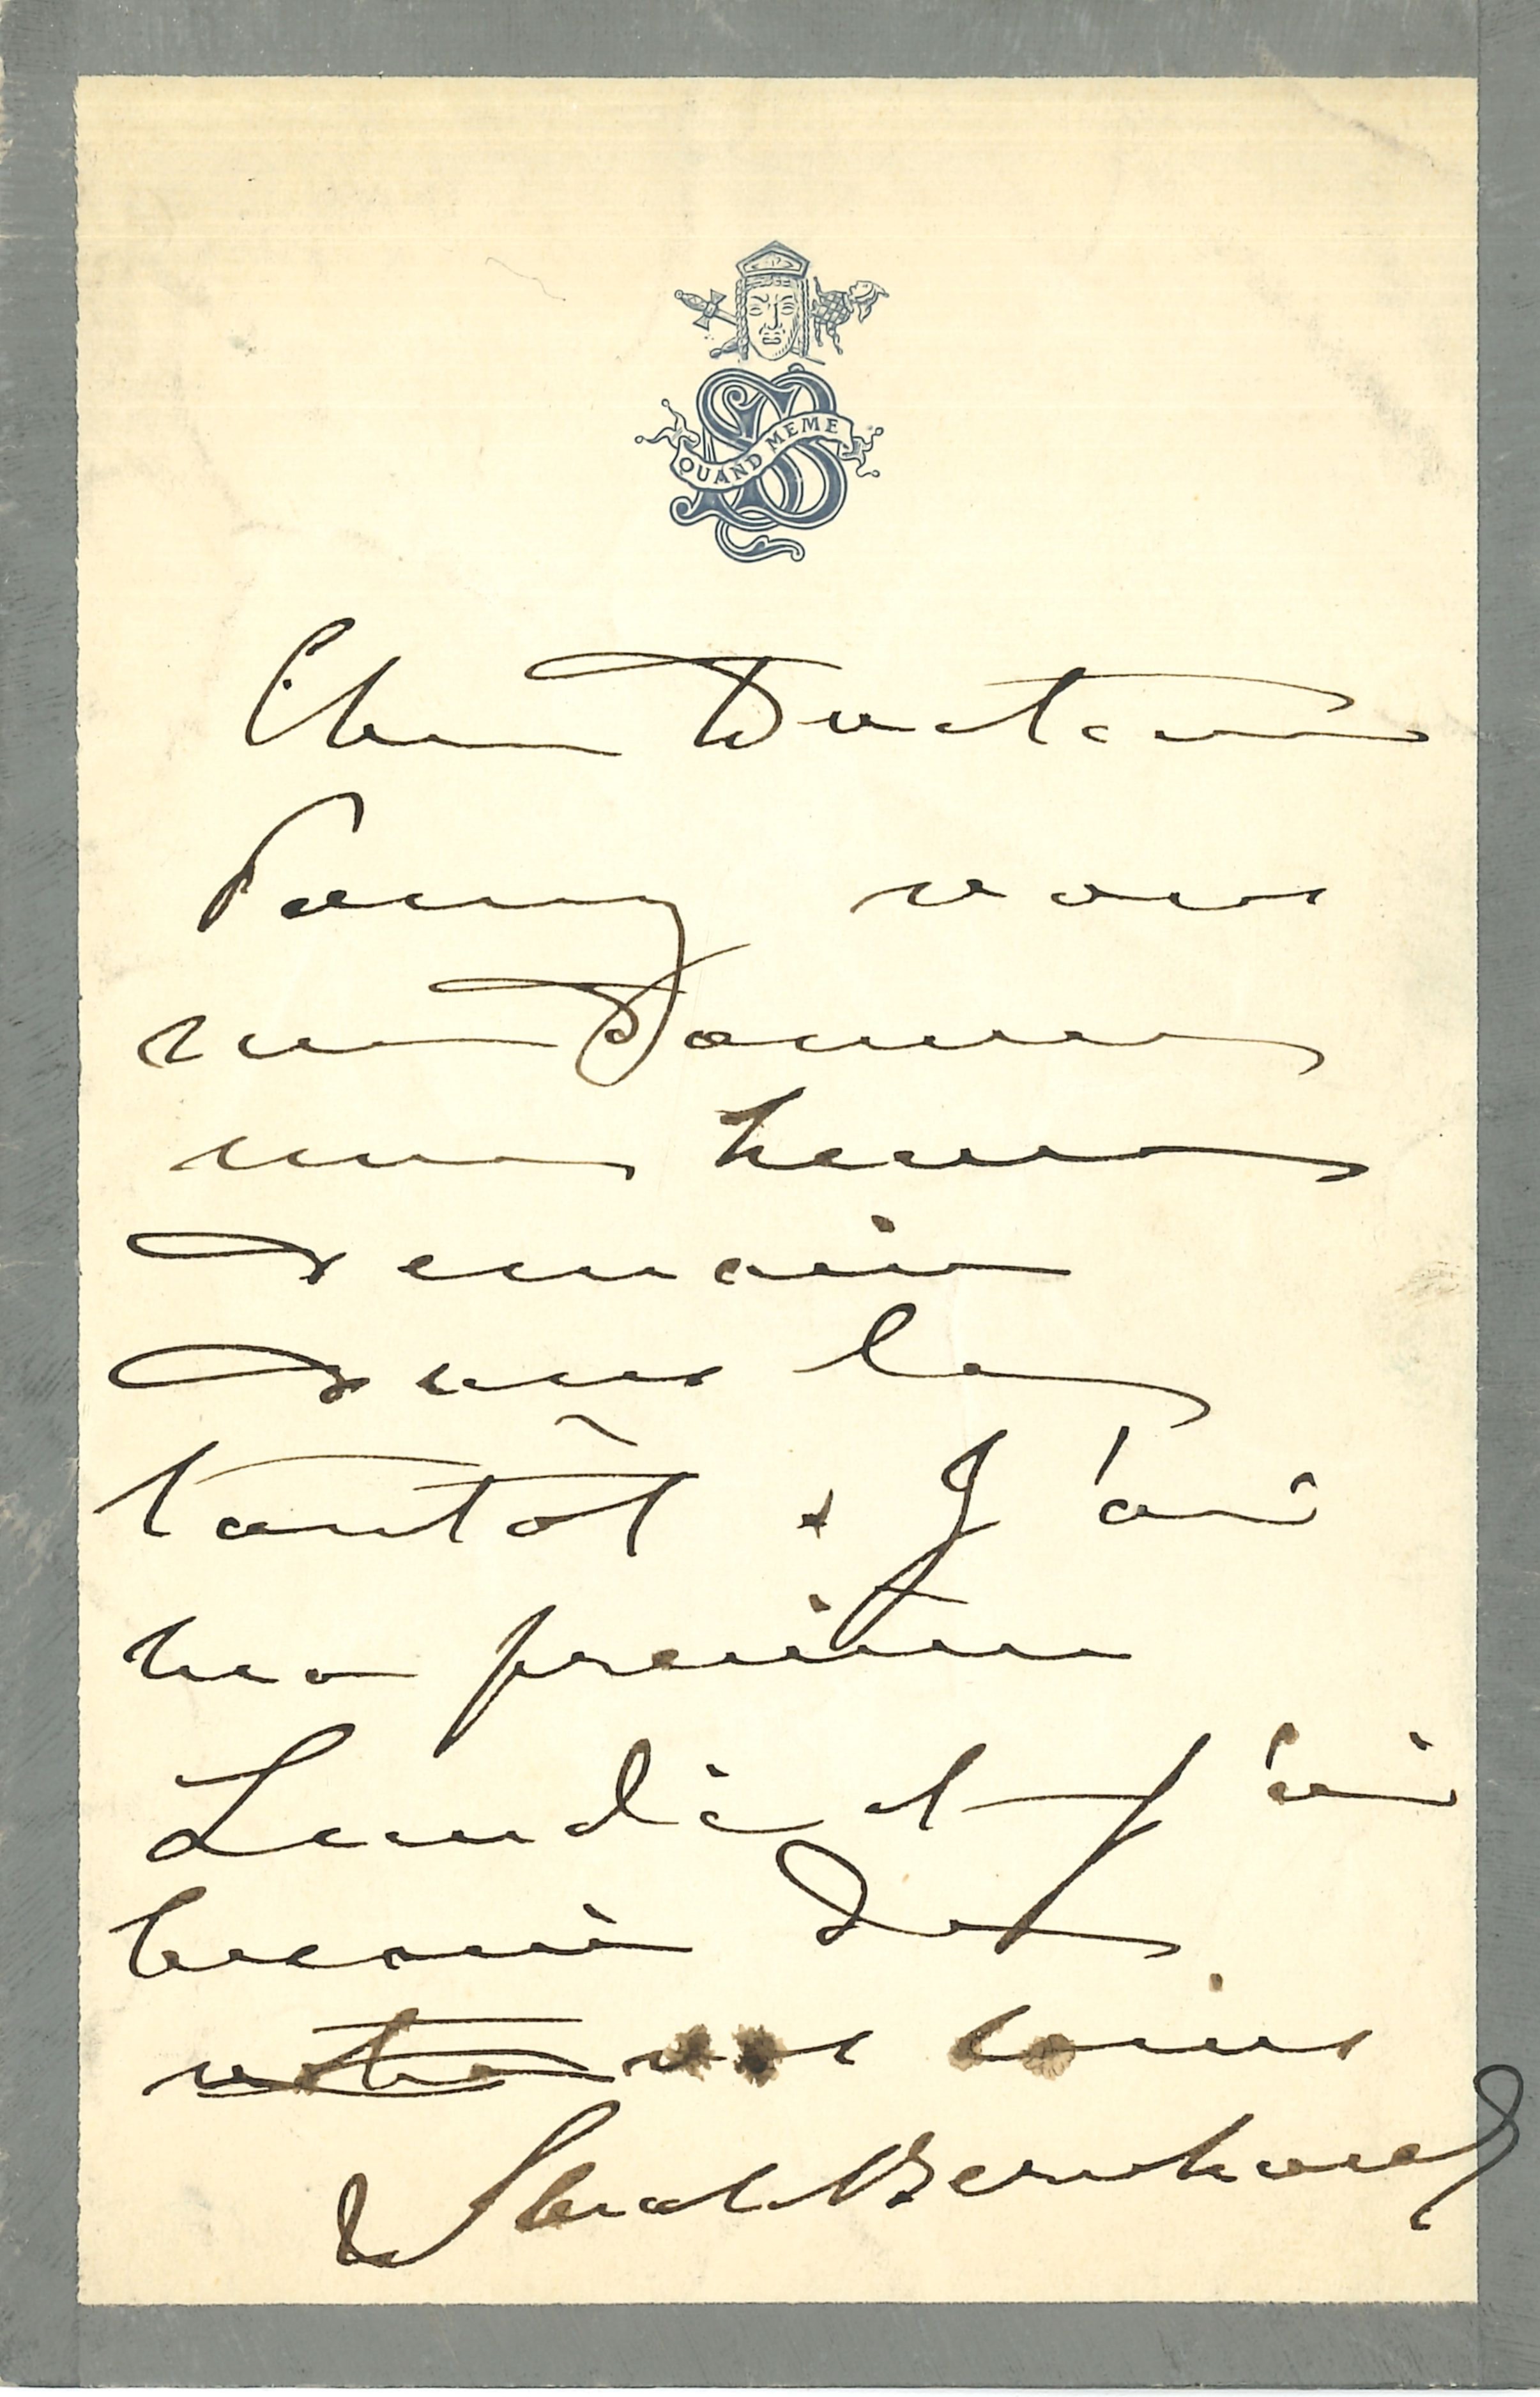 QUAND MEME
Cher Docteur
Pouvez vous
me donner
une heure
demain
dans la
tantôt. J'ai
ma première
Lundi et j'ai
besoin de
votre vos soins
Sarah Bernhardt